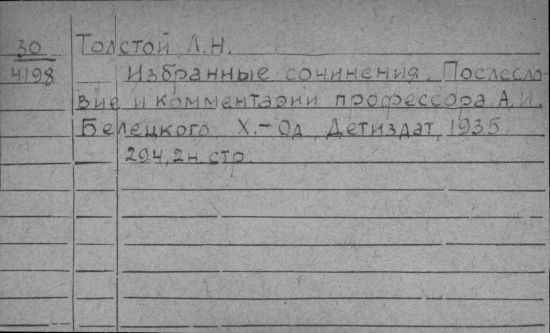 30 Толстой Л.Н.
4198 Избранные сочинения. Послесло-
вие и комментарии профессора А.И.
Белецкого. Х.-Од. Детиздат, 1935
294, 2н. стр.